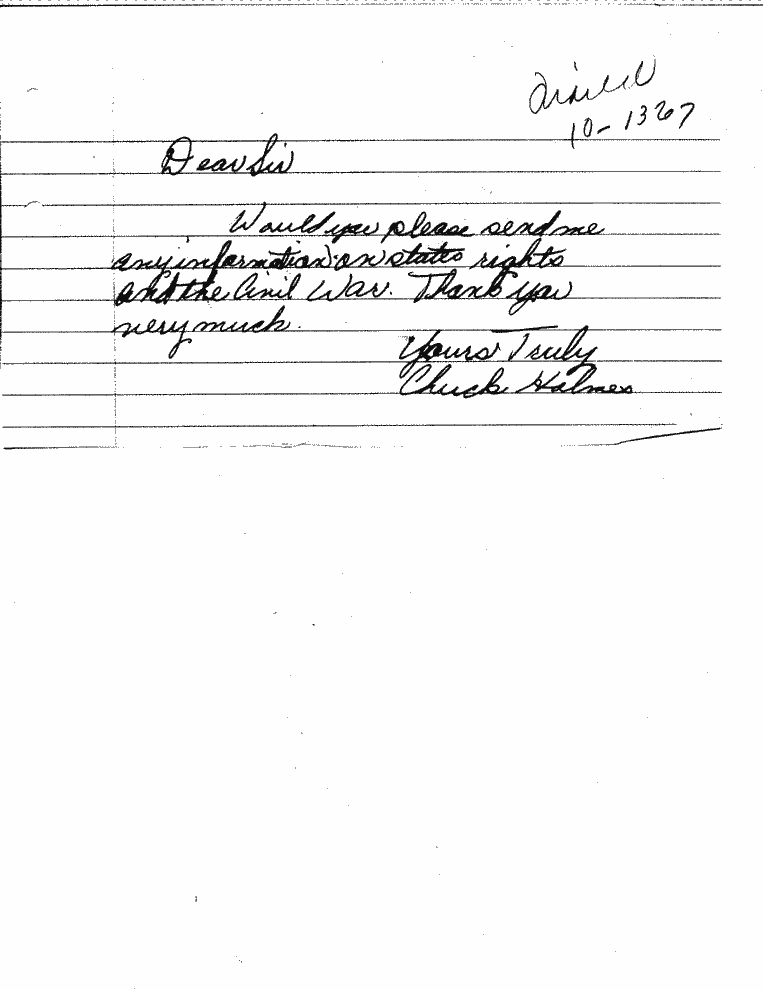 10-1367
Dear Sir
Would you please send me
any information on states rights
and the Civil War. Thank you
very much.
Yours Truly
Chuck Holmes